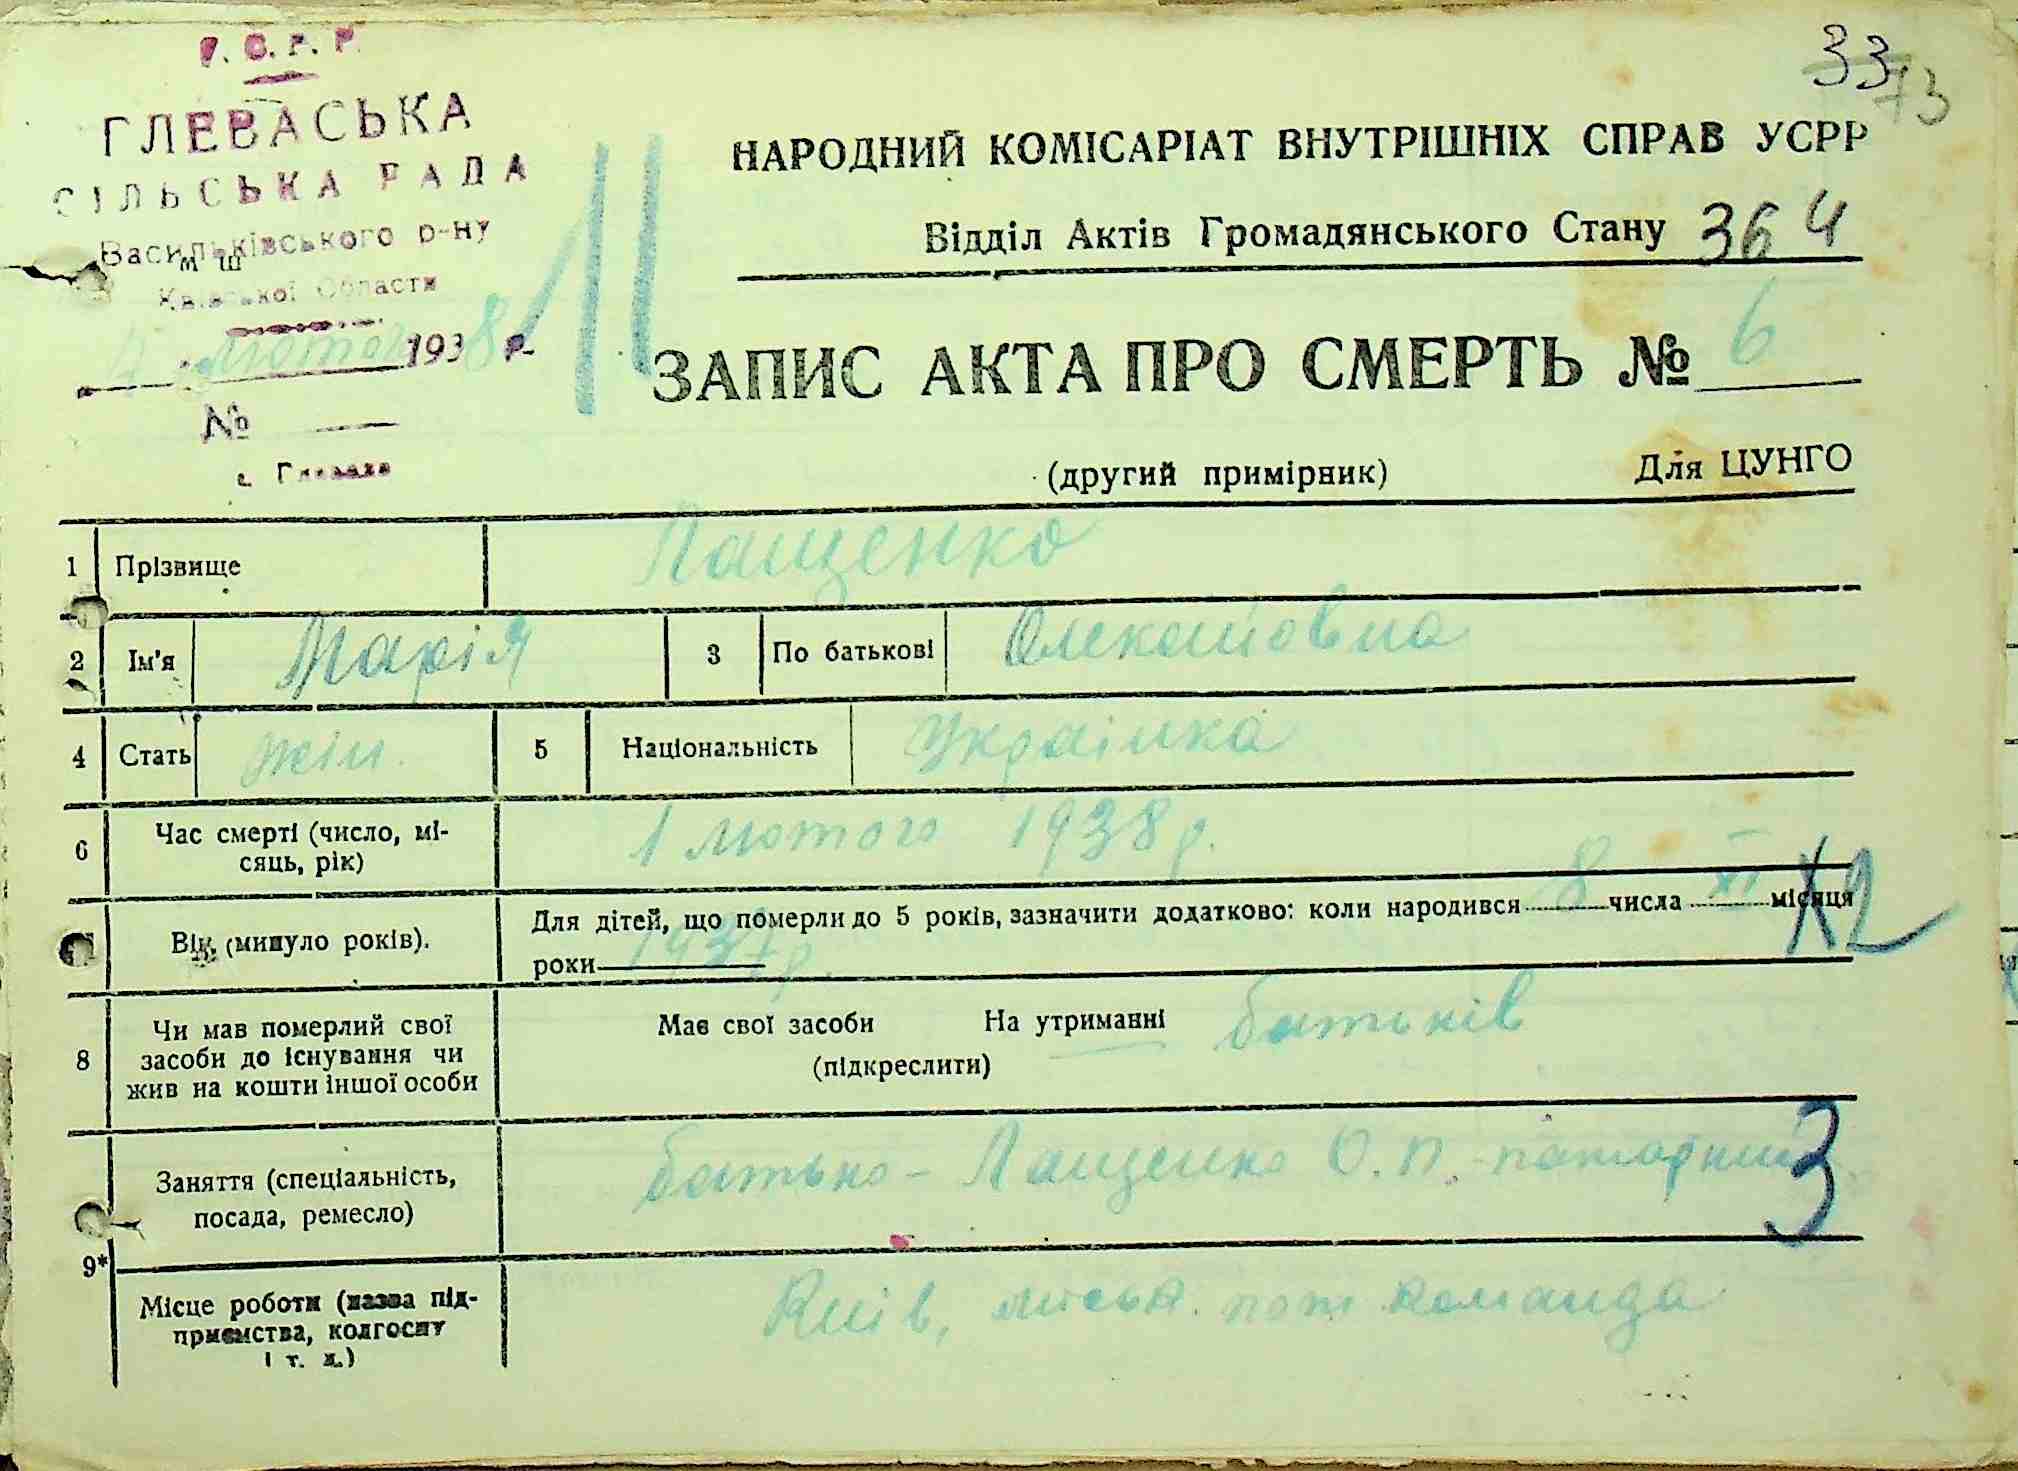 У.С.Р.Р.
33 73
ГЛЕВАСЬКА
СІЛЬСЬКА РАДА
Васильківського р-ну
м ш
Київської Области
4 лютого 1938 р.
№
с. Глеваха
11
НАРОДНИЙ КОМІСАРІАТ ВНУТРІШНІХ СПРАВ УСРР
Відділ Актів Громадянського Стану 364
ЗАПИС АКТА ПРО СМЕРТЬ № 6
(другий примірник) Для ЦУНГО
1 Прізвище Лащенко
2 Ім'я Марія 3 По батькові
4 Стать жін. 5 Національність Українка
6 Час смерті (число, мі-
сяць, рік) 1 лютого 1938 р.
Вік (минуло років). Для дітей, що померли до 5 років, зазначити додатково: коли народився 8 числа XI місяця
роки 1937 р.
8 Чи мав померлий свої
засоби до існування чи
жив на кошти іншої особи
Має свої засоби На утриманні батьків
(підкреслити)
Заняття (спеціальність,
посада, ремесло) батько - Лащенко О.П. - пожарний
3
9*
Місце роботи (назва під-
приємства, колгоспу
і т. д.) Київ, міськ. пож команда